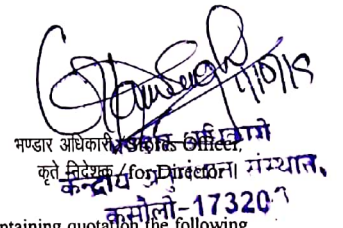 1/10/15
भण्डार अधिकारी/Stores Officer,
कृते निदेशक/for Director
केन्द्रीय अनुसंधान संस्थान,
कसौली-17320
ntaining quotation the following